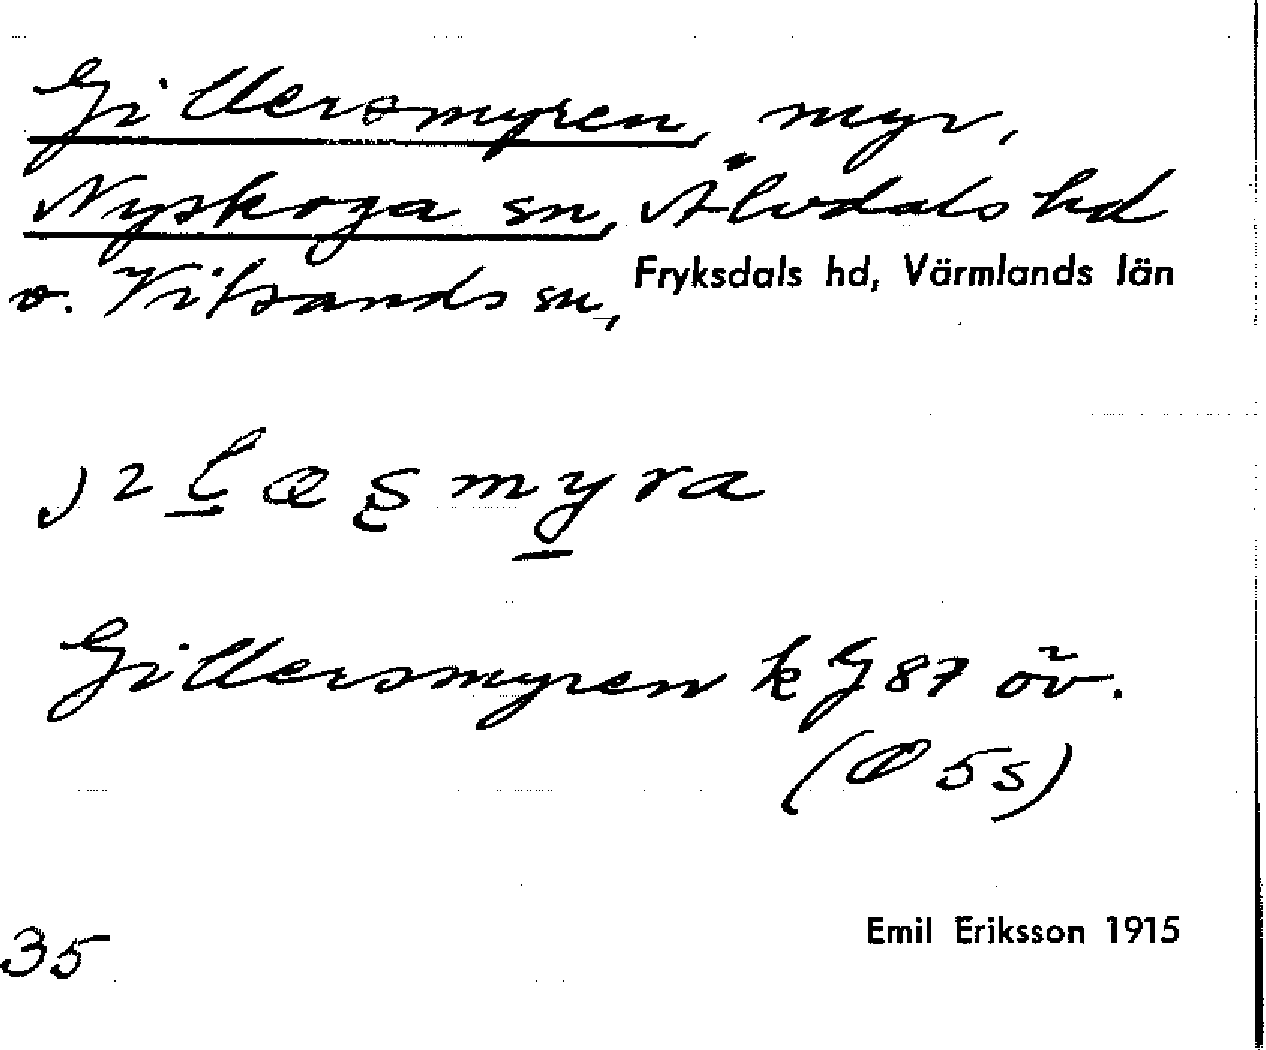 Gillersmyren, myr,
Nyskoga sn, Älvdals hd
o. Vitsands sn, Fryksdals hd, Värmlands län
myra
Gillersmyren k G 87 öv.
(Ø 5s)
35
Emil Eriksson 1915